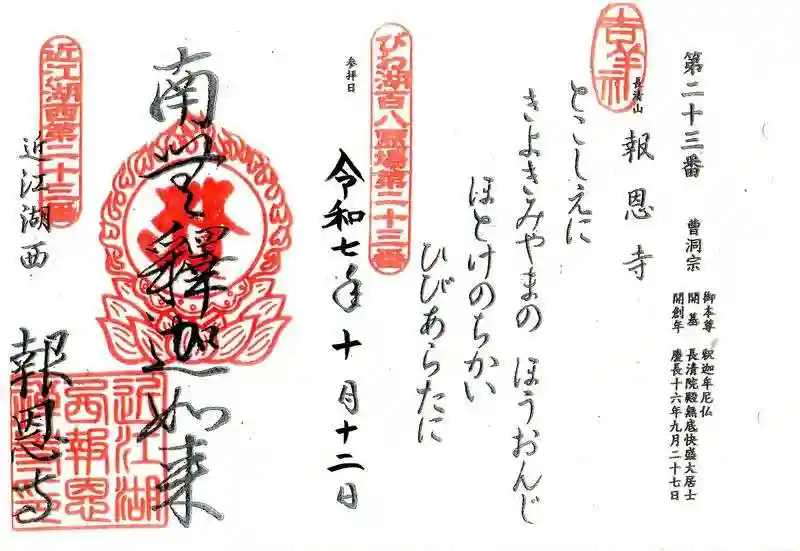 第二十三番
曹洞宗
御本尊 釈迦牟尼仏
開基 長清院殿無底快盛大居士
開創年 慶長十六年九月二十七日
長清山
報恩寺
とこしえに
きよきみやまの ほうおんじ
ほとけのちかい
ひびあらたに
びわ湖百八霊場第二十三番
参拝日
令和七年十月十二日
南無釋迦如来
近江湖西第二十三番
近江湖西
報恩寺
近江湖
西報恩